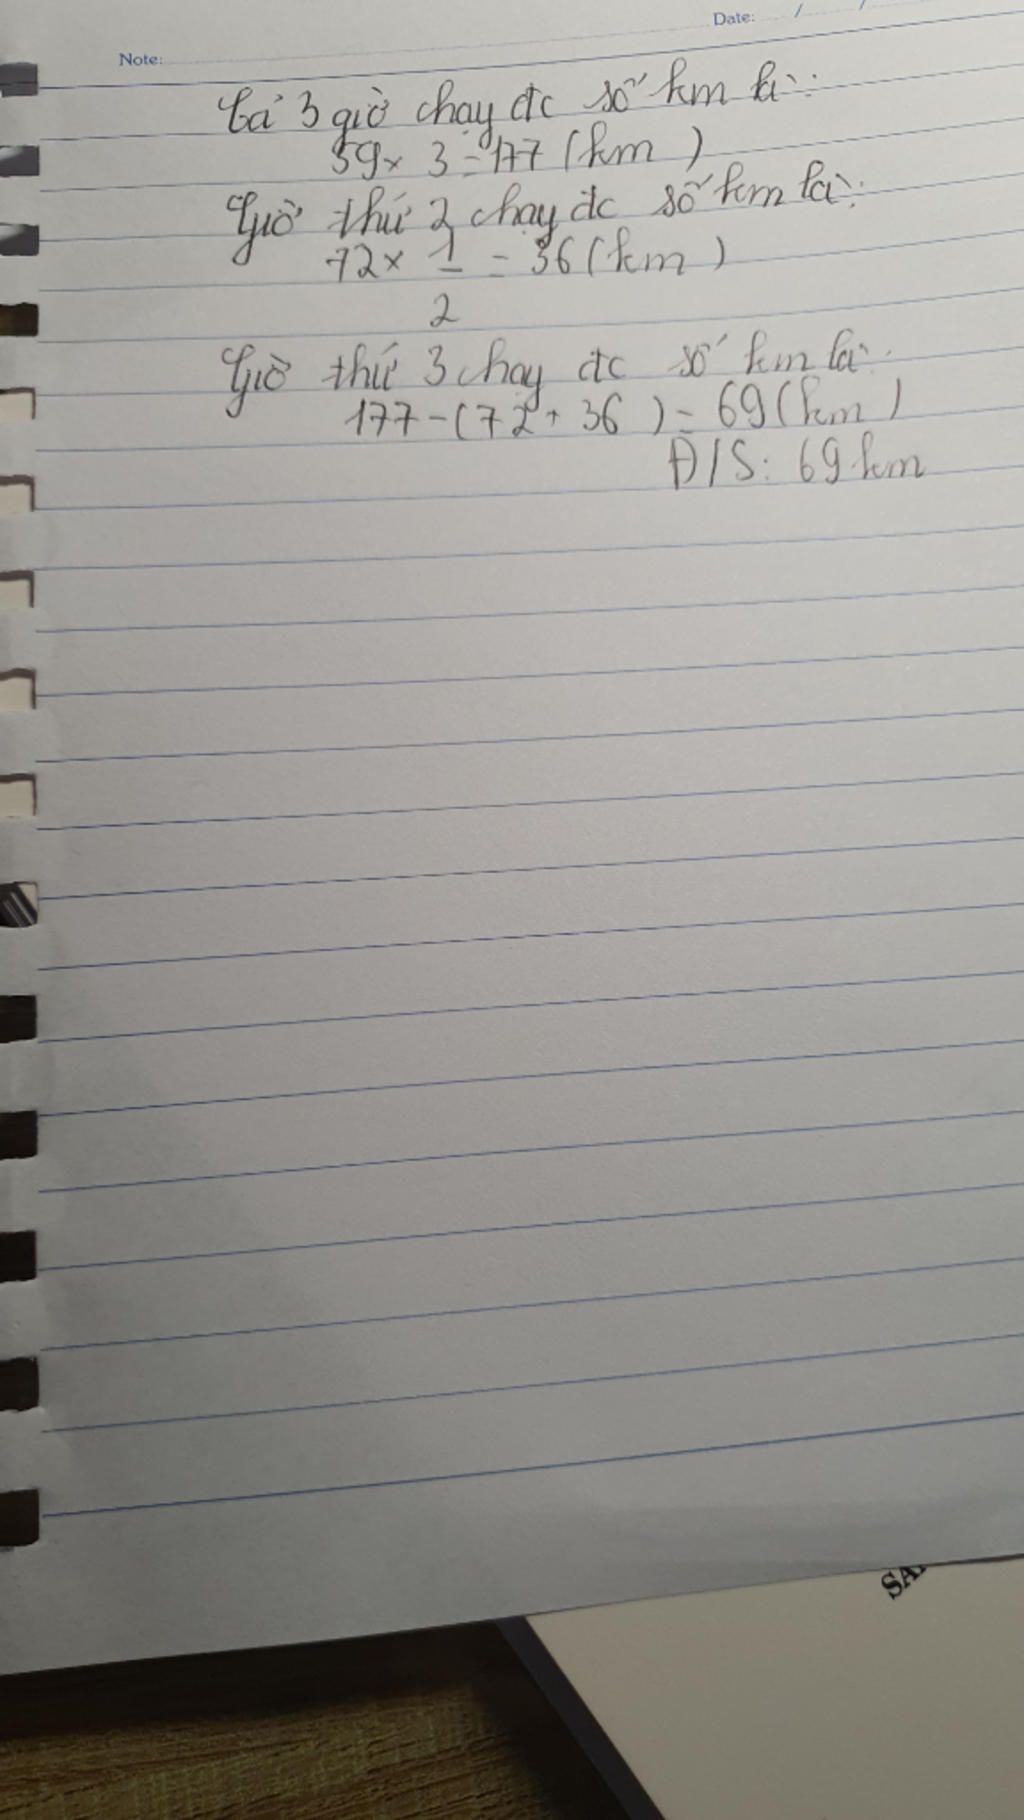 Date: / /
Note:
Cả 3 giờ chạy đc số km là:
59 x 3 = 177 (km)
Giờ thứ 2 chạy đc số km là:
72 x 1/2 = 36 (km)
Giờ thứ 3 chạy đc số km là:
177 - (72 + 36) = 69 (km)
Đ/S: 69 km